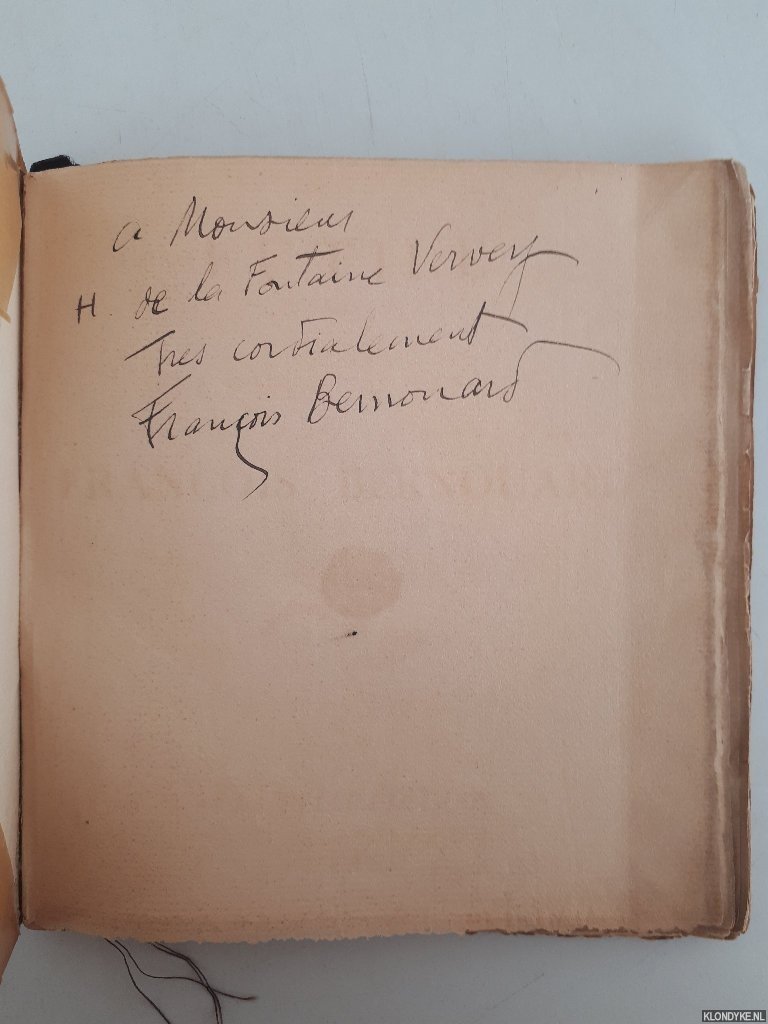 a Monsieur
H. de la Fontaine Verwey
Tres cordialement
François Bernouard
KLONDYKE.NL